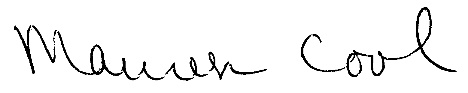 Maureen Cool